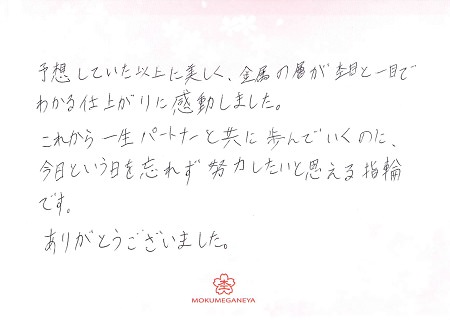 予想していた以上に美しく、金属の層が杢目と一目で
わかる仕上がりに感動しました。
これから一生パートナーと共に歩んでいくのに、
今日という日を忘れず努力したいと思える指輪
です。
ありがとうございました。
杢
MOKUMEGANEYA